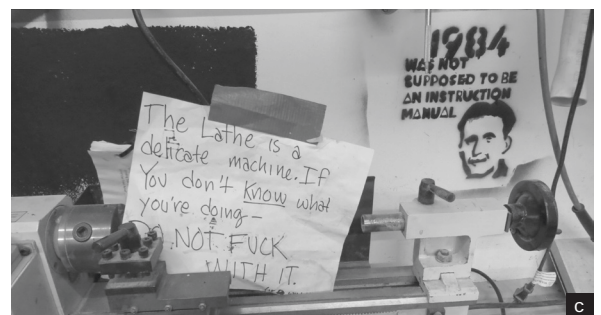 The Lathe is a
delicate machine. If
You don't Know what
you're doing—
NOT FUCK
WITH IT.
1984
WAS NOT
SUPPOSED TO BE
AN INSTRUCTION
MANUAL
C